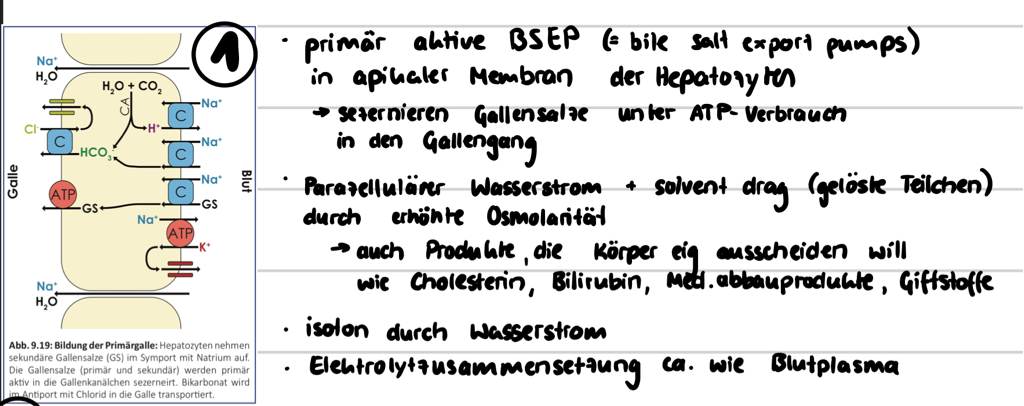 Na⁺
H₂O
H₂O + CO₂
CA
Na⁺
C
Cl⁻
H⁺
C
Na⁺
HCO₃⁻
C
Na⁺
C
ATP
GS
GS
Na⁺
ATP
K⁺
Na⁺
H₂O
Galle
Blut
Abb. 9.19: Bildung der Primärgalle: Hepatozyten nehmen
sekundäre Gallensalze (GS) im Symport mit Natrium auf.
Die Gallensalze (primär und sekundär) werden primär
aktiv in die Gallenkanälchen sezerniert. Bikarbonat wird
im Antiport mit Chlorid in die Galle transportiert.
1
• primär aktive BSEP (= bile salt export pumps)
in apikaler Membran der Hepatozyten
→ sezernieren Gallensalze unter ATP-Verbrauch
in den Gallengang
• Parazellulärer Wasserstrom + solvent drag (gelöste Teilchen)
durch erhöhte Osmolarität
→ auch Produkte, die Körper eig ausscheiden will
wie Cholesterin, Bilirubin, Med.abbauprodukte, Giftstoffe
• isoton durch Wasserstrom
• Elektrolytzusammensetzung ca. wie Blutplasma